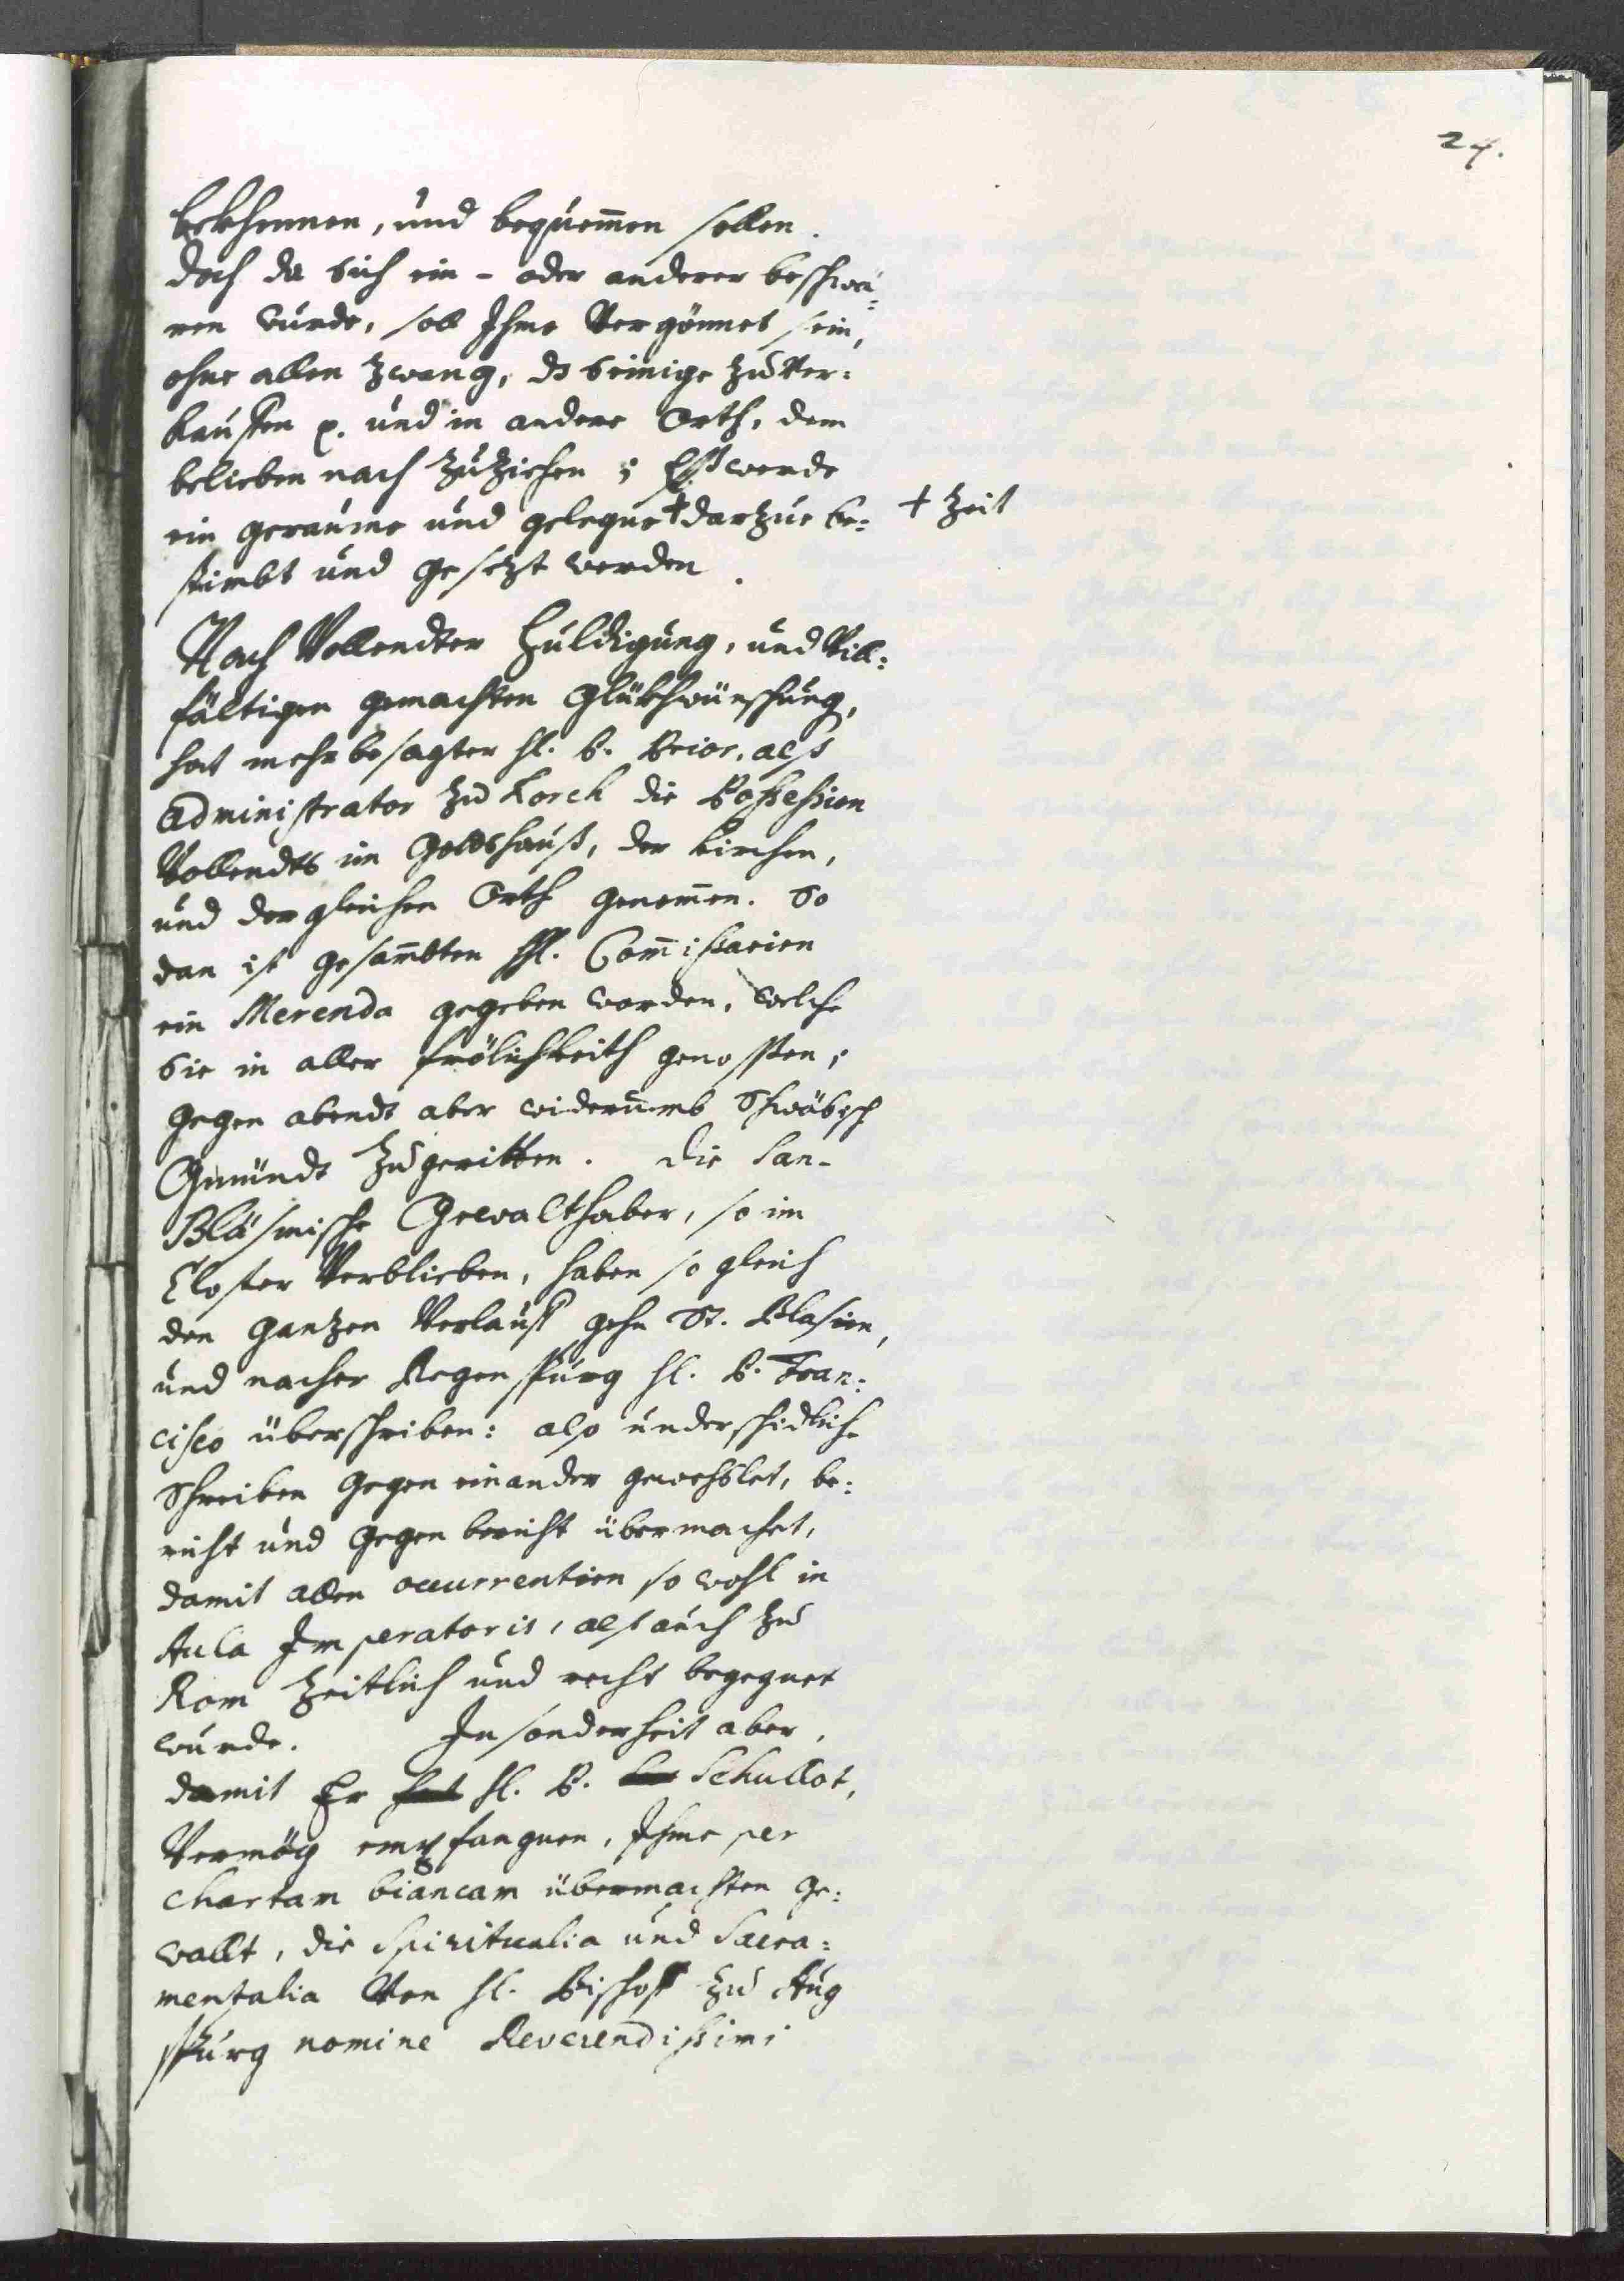 24.
bekhennen, und bequemen sollen.
doch da sich ein- oder anderer beschwä:
ren wurde, soll Ihme Vergönnet sein,
ohne allen zwang, ds seinige zu Ver:
kauffen p. und in andere Orth, dem
belieben nach zu ziehen; Eß werde
ein geraume und gelegne † darzue be: † Zeit
stimbt und gesezt werden.
Nach Vollendter Huldigung, und Vill:
fältigen gemachten Glükhwünschung,
hat mehrbesagter hl. P. Prior, alß
Administrator zu Lorch die Possession
Vollendts im Gottshauß, der kirchen,
und dergleichen Orth genomen. So
dan ist gesambten HHl. Comissarien
ein Merenda gegeben worden, welche
sie in aller frölichkeith genossen;
gegen abendt aber widerumb Schwäbisch
Gmündt zu geritten. Die San-
Bläsmische Gewalthaber, so im
Closter Verblieben, haben so gleich
den gantzen Verlauff gehn St. Blasien,
und nacher Regenspurg hl. P. Fran:
cisco überschriben: also underschidliche
Schreiben gegen einander gewechslet, be:
richt und gegenbericht übermachet,
damit allen occurrentien so wohl in
Aula Imperatoris, alß auch zu
Rom zeitlich und recht begegnet
wurde. In sonderheit aber,
damit Er hat hl. P. Schullot,
Vermög empfangnen, Ihme per
chartam biancam übermachten ge:
wallt, die Spiritualia und Sacra:
mentalia Von hl. Bischoff zu Aug
spurg nomine Reverendissimi